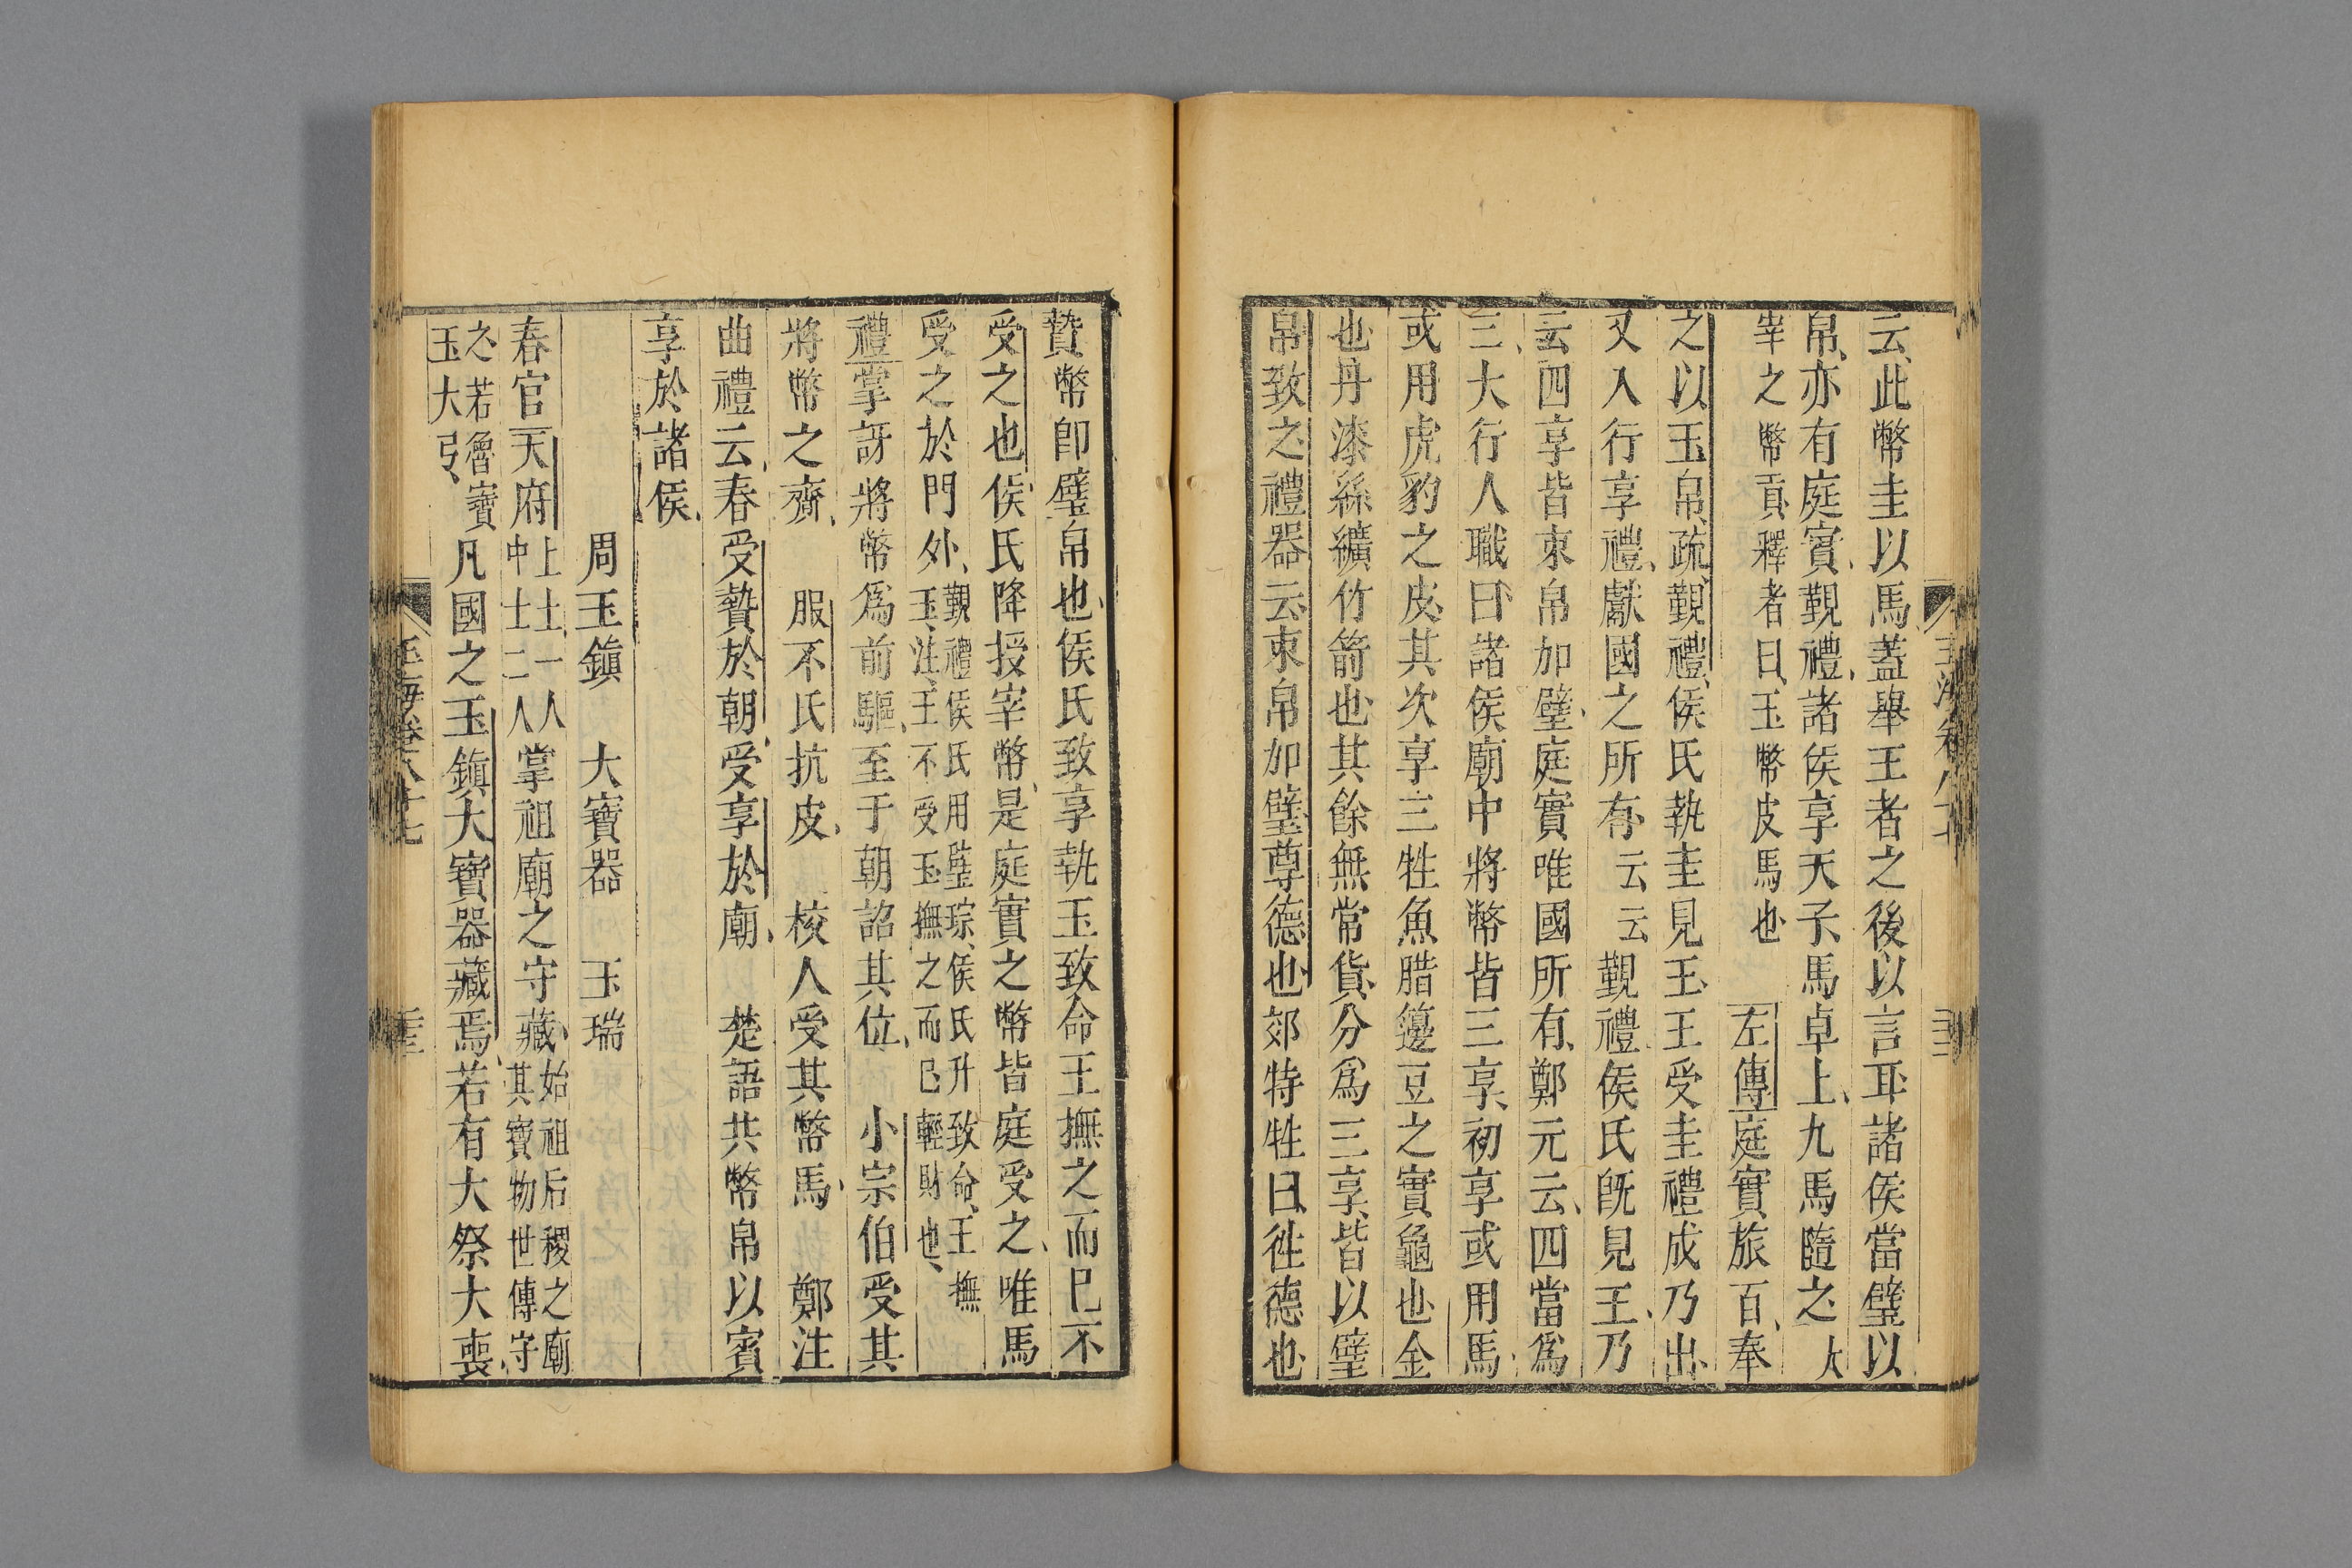 云此幣圭以馬蓋舉王者之後以言耳諸侯當璧以
帛亦有庭實覲禮諸侯享天子馬卓上九馬隨之大
宰之幣貢釋者曰玉幣皮馬也 左傳庭實旅百奉
之以玉帛疏覲禮侯氏執圭見王王受圭禮成乃出
又入行享禮獻國之所有云云覲禮侯氏旣見王乃
云四享皆束帛加璧庭實唯國所有鄭元云四當爲
三大行人職曰諸侯廟中將幣皆三享初享或用馬
或用虎豹之皮其次享三牲魚腊籩豆之實龜也金
也丹漆絲纊竹箭也其餘無常貨分爲三享皆以璧
帛致之禮器云束帛加璧尊德也郊特牲曰徃德也
贄幣卽璧帛也侯氏致享執玉致命王撫之而已不
受之也侯氏降授宰幣是庭實之幣皆庭受之唯馬
受之於門外覲禮侯氏用璧琮侯氏升致命王撫
玉注王不受玉撫之而已輕財也
禮掌訝將幣爲前驅至于朝詔其位 小宗伯受其
將幣之齎 服不氏抗皮 校人受其幣馬 鄭注
曲禮云春受贄於朝受享於廟 楚語共幣帛以賓
享於諸侯
周玉鎭 大寶器 玉瑞
春官天府上士一人
中士二人掌祖廟之守藏始祖后稷之廟
其寶物世傳守
之若魯寶
玉大弓凡國之玉鎭大寶器藏焉若有大祭大喪
玉海卷八十七